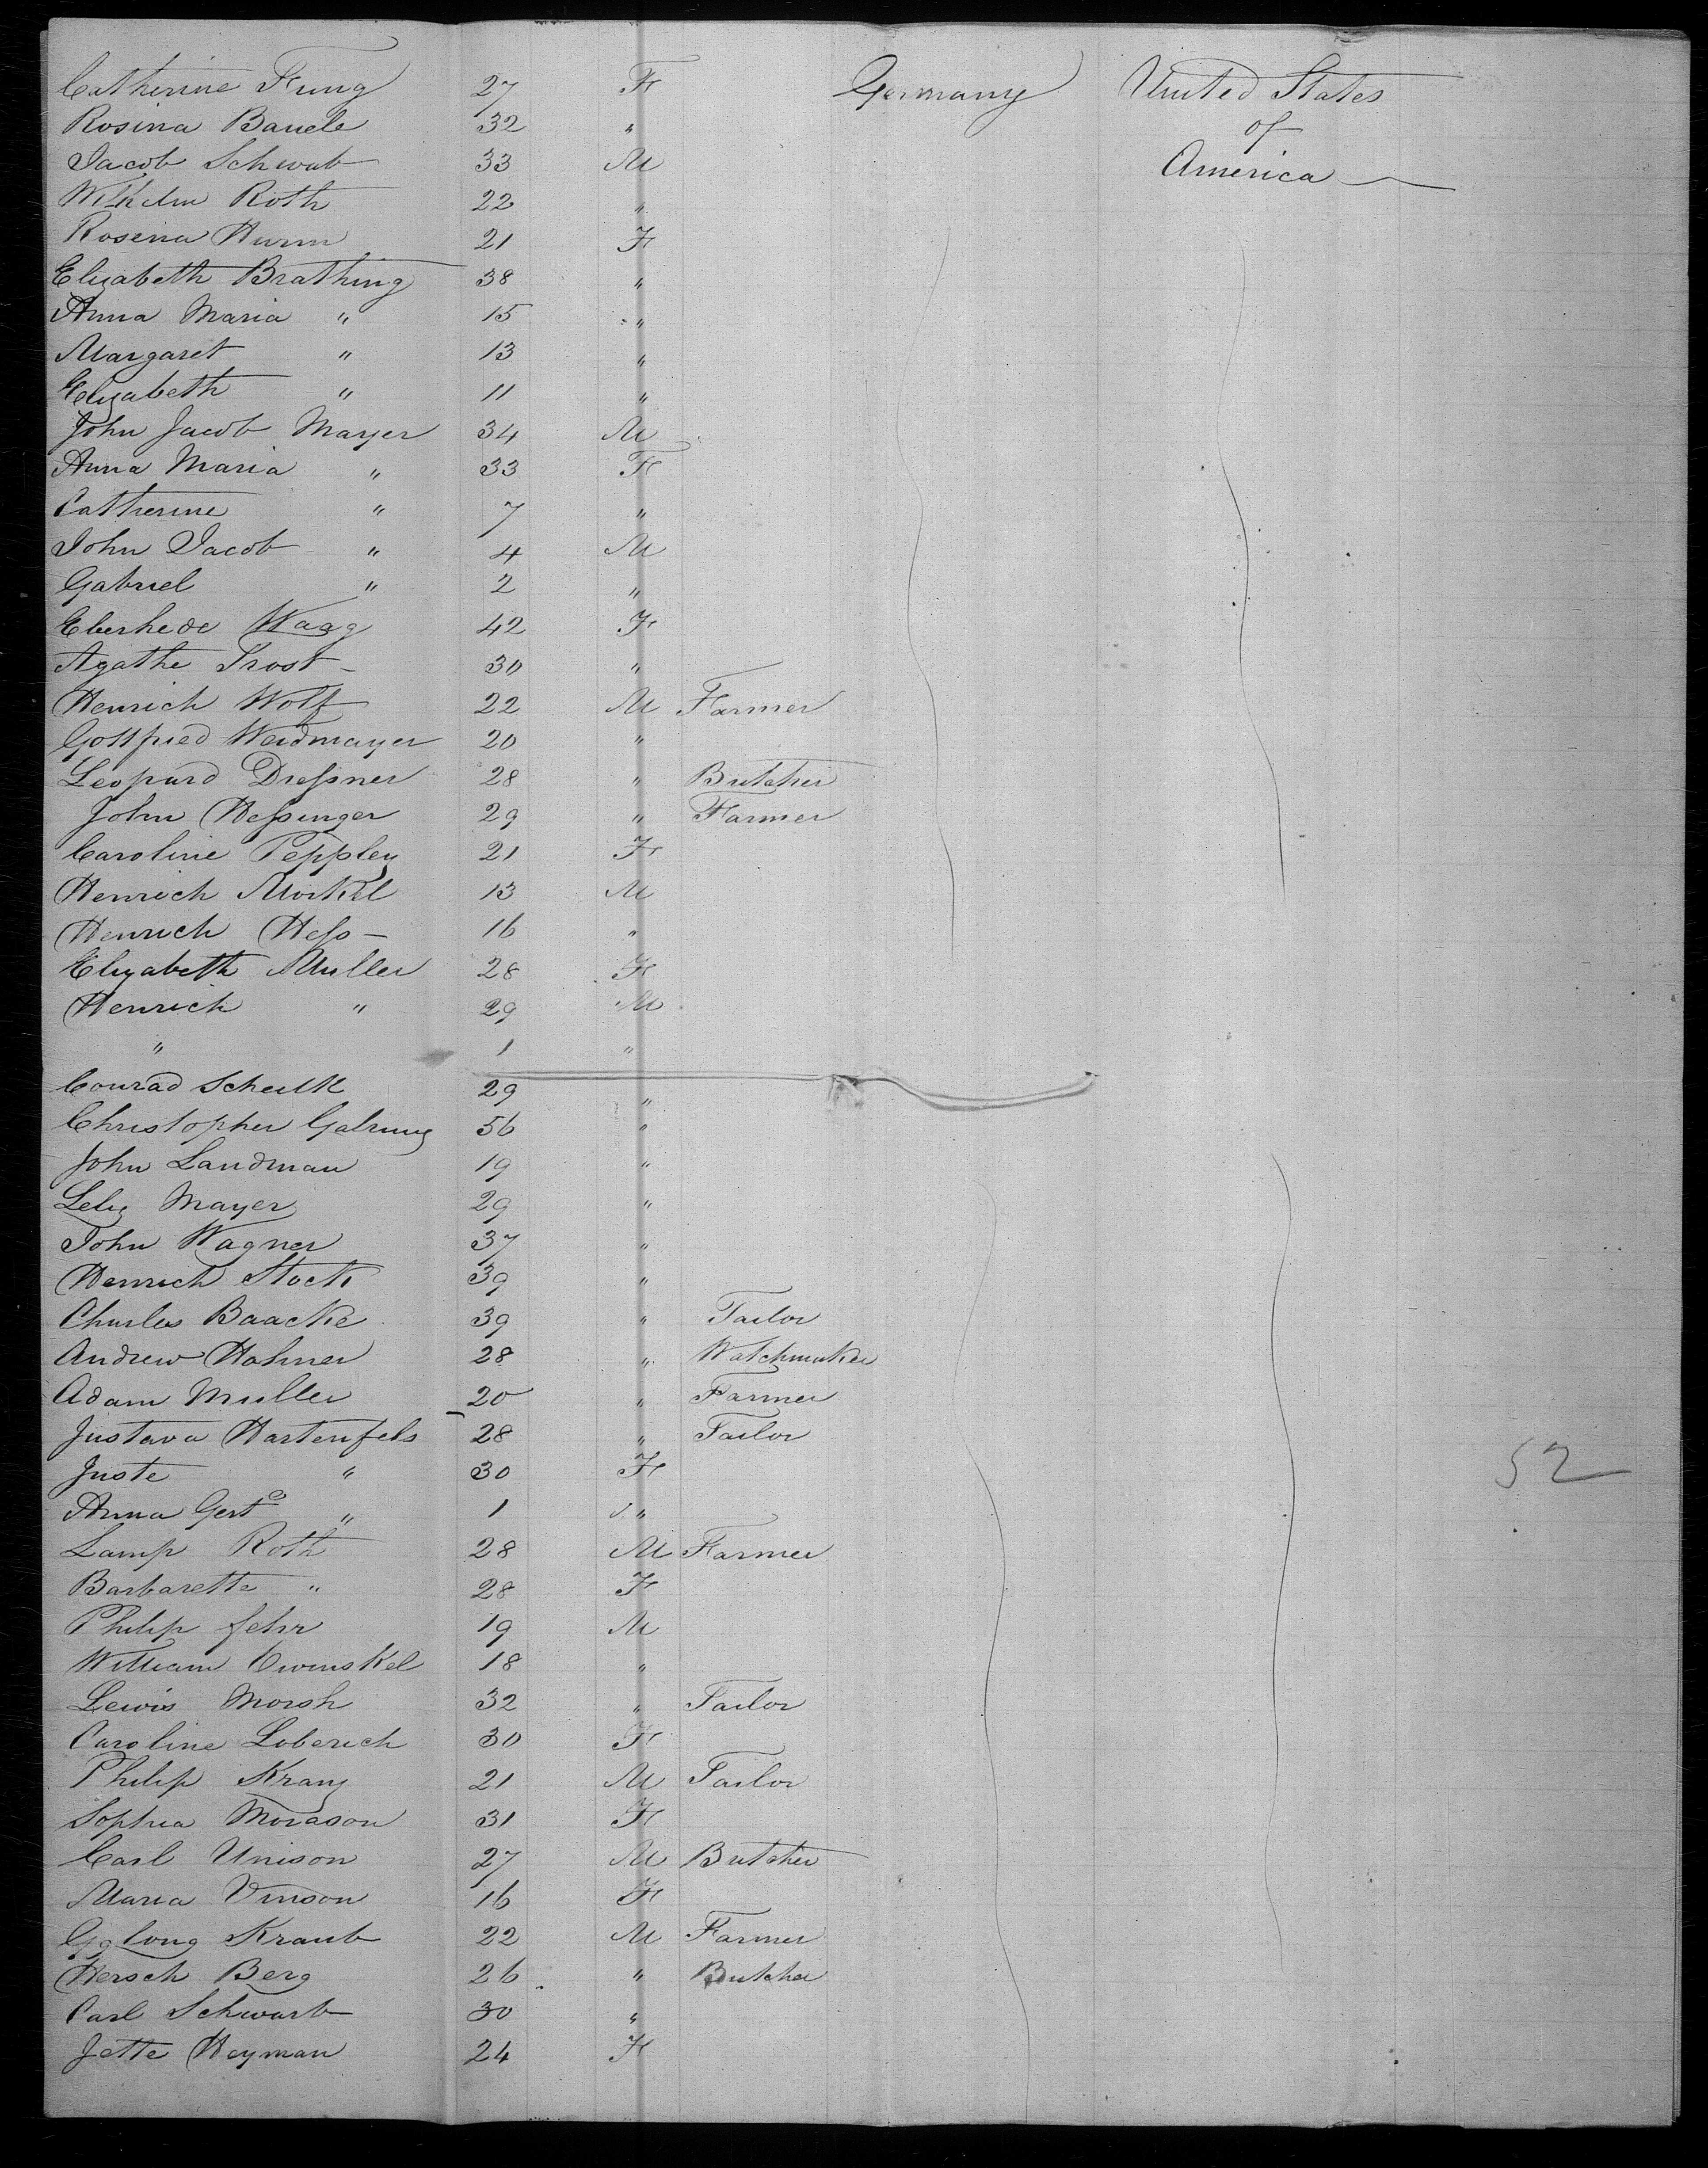 Catherine Fung 27 F Germany United States
Rosina Bauele 32 " of
Jacob Schwab 33 M America
Wilhelm Roth 22 "
Rosina Hurm 21 F
Elizabeth Brathing 38 "
Anna Maria " 15 "
Margaret " 13 "
Elizabeth " 11 "
John Jacob Mayer 34 M
Anna Maria " 33 F
Catherine " 7 "
John Jacob " 4 M
Gabriel " 2 "
Eberhede Waag 42 F
Agathe Trost 30 "
Henrich Wolf 22 M Farmer
Gottfried Weidmayer 20 "
Leopard Dressner 28 " Butcher
John Hessinger 29 " Farmer
Caroline Peppley 21 F
Henrich Morkel 13 M
Henrich Hess 16 "
Elizabeth Muller 28 F
Henrich " 29 M
" 1 "
Conrad 29 "
Christopher Galrung 56 "
John Landman 19 "
Mayer 29 "
John Wagner 37 "
Henrich Stock 39 "
Charles Baacke 39 " Tailor
Andrew Hohner 28 " Watchmaker
Adam Muller 20 " Farmer
Justava Hartenfels 28 " Tailor
Juste " 30 F 52
Anna Gert " 1 "
Lamp Roth 28 M Farmer
Barbarette " 28 F
Philip Fehr 19 M
William 18 "
Lewis Morsh 32 " Tailor
Caroline Loberich 30 F
Philip Kranz 21 M Tailor
Sophia Morason 31 F
Carl Unison 27 M Butcher
Maria Vinson 16 F
Kraub 22 M Farmer
Hersch Berg 26 " Butcher
Carl Schwarb 30 "
Jette Heyman 24 F